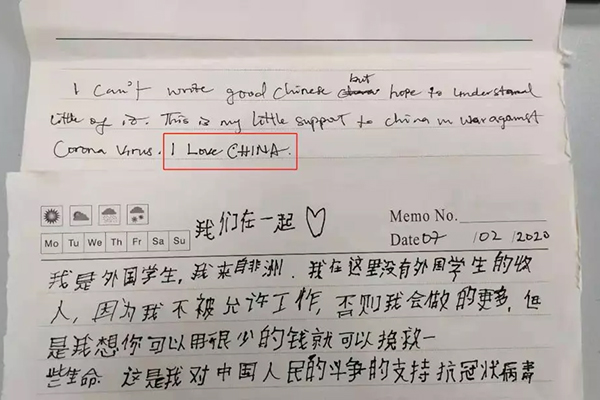 I can't write good Chinese but hope to understand
little of it. This is my little support to china in war against
Corona Virus. I Love CHINA.
我们在一起♡
Memo No.
Mo Tu We Th Fr Sa Su
Date 07 /02 /2020
我是外国学生,我来自非洲.我在这里没有外国学生的收
人,因为我不被允许工作,否则我会做的更多,但
是我想你可以用很少的钱就可以挽救一
些生命.这是我对中国人民的斗争的支持抗冠状病毒